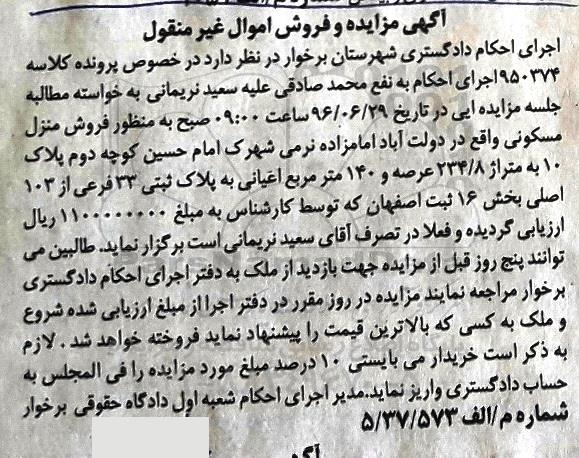 آگهی مزایده و فروش اموال غیر منقول
اجرای احکام دادگستری شهرستان برخوار در نظر دارد در خصوص پرونده کلاسه
۹۵۰۳۷۴اجرای احکام به نفع محمد صادقی علیه سعید نریمانی به خواسته مطالبه
جلسه مزایده ایی در تاریخ ۹۶/۰۶/۲۹ساعت ۰۹:۰۰ صبح به منظور فروش منزل
مسکونی واقع در دولت آباد امامزاده نرمی شهرک امام حسین کوچه دوم پلاک
۱۰ به متراژ ۲۳۴/۸ عرصه و ۱۴۰ متر مربع اعیانی به پلاک ثبتی ۳۳ فرعی از ۱۰۳
اصلی بخش ۱۶ ثبت اصفهان که توسط کارشناس به مبلغ ۱۱۰۰۰۰۰۰۰۰ ریال
ارزیابی گردیده و فعلا در تصرف آقای سعید نریمانی است برگزار نماید. طالبین می
توانند پنج روز قبل از مزایده جهت بازدید از ملک به دفتر اجرای احکام دادگستری
برخوار مراجعه نمایند مزایده در روز مقرر در دفتر اجرا از مبلغ ارزیابی شده شروع
و ملک به کسی که بالاترین قیمت را پیشنهاد نماید فروخته خواهد شد . لازم
به ذکر است خریدار می بایستی ۱۰ درصد مبلغ مورد مزایده را فی المجلس به
حساب دادگستری واریز نماید.مدیر اجرای احکام شعبه اول دادگاه حقوقی برخوار
شماره م/الف ۵/۳۷/۵۷۳